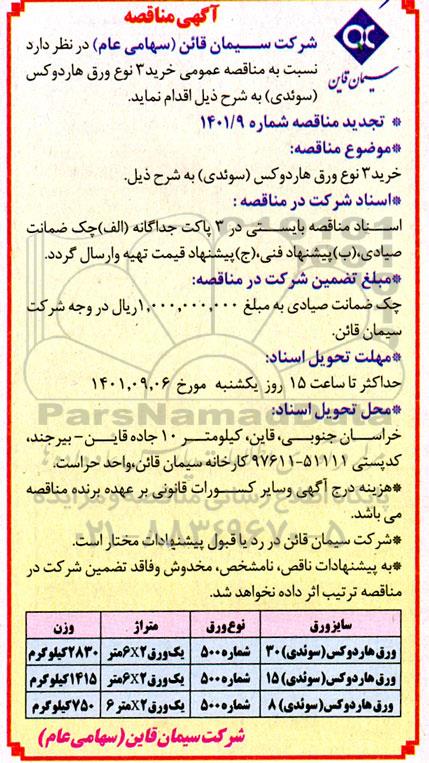 آگهی مناقصه
شرکت سیمان قائن (سهامی عام) در نظر دارد
نسبت به مناقصه عمومی خرید ۳ نوع ورق هاردوکس
(سوئدی) به شرح ذیل اقدام نماید.
سیمان قاین
* تجدید مناقصه شماره ۱۴۰۱/۹
*موضوع مناقصه:
خرید ۳ نوع ورق هاردوکس (سوئدی) به شرح ذیل.
*اسناد شرکت در مناقصه :
اسناد مناقصه بایستی در ۳ پاکت جداگانه (الف)چک ضمانت
صیادی،(ب)پیشنهاد فنی،(ج)پیشنهاد قیمت تهیه وارسال گردد.
*مبلغ تضمین شرکت در مناقصه:
چک ضمانت صیادی به مبلغ ۱,۰۰۰,۰۰۰,۰۰۰ریال در وجه شرکت
سیمان قائن.
*مهلت تحویل اسناد:
حداکثر تا ساعت ۱۵ روز یکشنبه مورخ ۱۴۰۱,۰۹,۰۶
*محل تحویل اسناد:
خراسان جنوبی، قاین، کیلومتر ۱۰ جاده قاین- بیرجند،
کدپستی ۵۱۱۱۱-۹۷۶۱۱ کارخانه سیمان قائن،واحد حراست.
*هزینه درج آگهی وسایر کسورات قانونی بر عهده برنده مناقصه
می باشد.
*شرکت سیمان قائن در رد یا قبول پیشنهادات مختار است.
*به پیشنهادات ناقص، نامشخص، مخدوش وفاقد تضمین شرکت در
مناقصه ترتیب اثر داده نخواهد شد.
سایز ورق نوع ورق متراژ وزن
ورق هاردوکس (سوئدی) ۳۰ شماره ۵۰۰ یک ورق ۲X۶متر ۲۸۳۰کیلوگرم
ورق هاردوکس (سوئدی) ۱۵ شماره ۵۰۰ یک ورق ۲X۶متر ۱۴۱۵کیلوگرم
ورق هاردوکس (سوئدی) ۸ شماره ۵۰۰ یک ورق ۲X۶ متر ۷۵۰کیلوگرم
شرکت سیمان قاین (سهامی عام)
ParsNamadData
۰۲۱-۸۸۳۴۹۶۷۰-۵